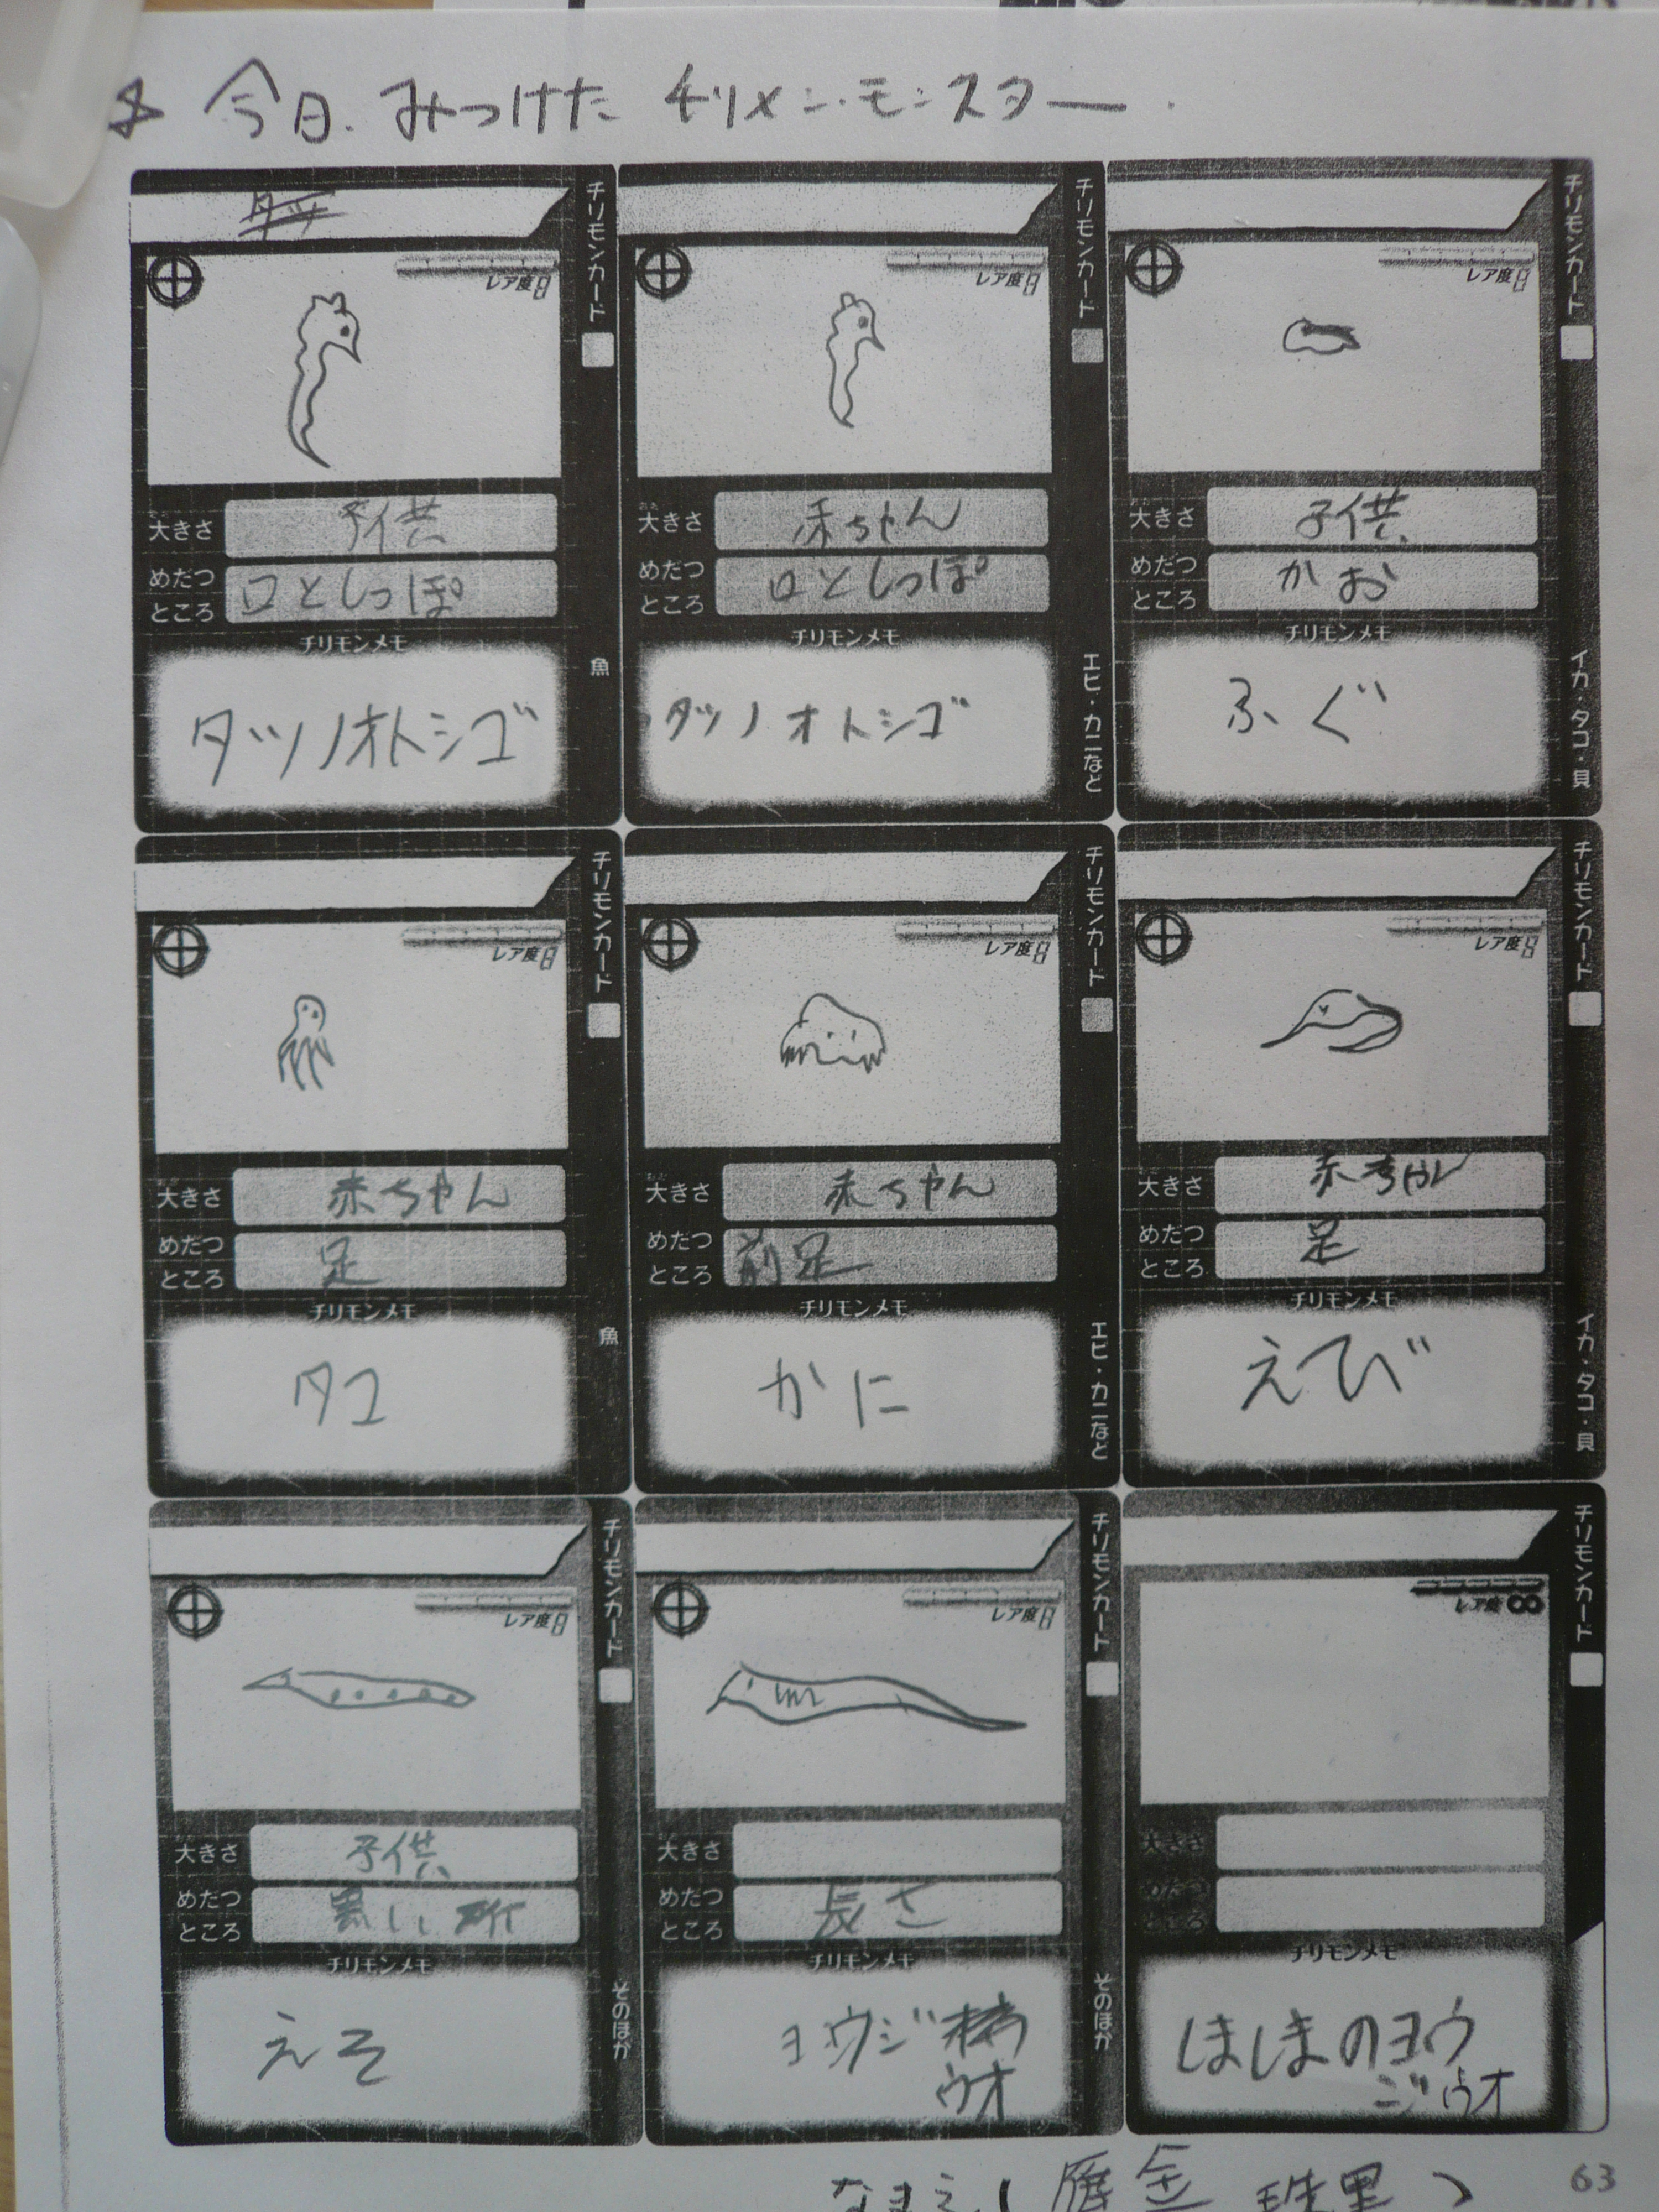 ☆ 今日.みつけた チリメン・モンスター.
チリモンカード
レア度
大きさ 子供
めだつところ 口としっぽ
チリモンメモ
タツノオトシゴ
魚
チリモンカード
レア度
大きさ 赤ちゃん
めだつところ 口としっぽ
チリモンメモ
タツノオトシゴ
エビ・カニなど
チリモンカード
レア度
大きさ 子供
めだつところ かお
チリモンメモ
ふぐ
イカ・タコ・貝
チリモンカード
レア度
大きさ 赤ちゃん
めだつところ 足
チリモンメモ
タコ
魚
チリモンカード
レア度
大きさ 赤ちゃん
めだつところ 前足
チリモンメモ
かに
エビ・カニなど
チリモンカード
レア度
大きさ 赤ちゃん
めだつところ 足
チリモンメモ
えび
イカ・タコ・貝
チリモンカード
レア度
大きさ 子供
めだつところ 黒い所
チリモンメモ
えそ
そのほか
チリモンカード
レア度
大きさ
めだつところ 長さ
チリモンメモ
ヨウジ
ウオ
そのほか
チリモンカード
レア度
大きさ
めだつところ
チリモンメモ
しましまのヨウ
ジウオ
なまえ(
63